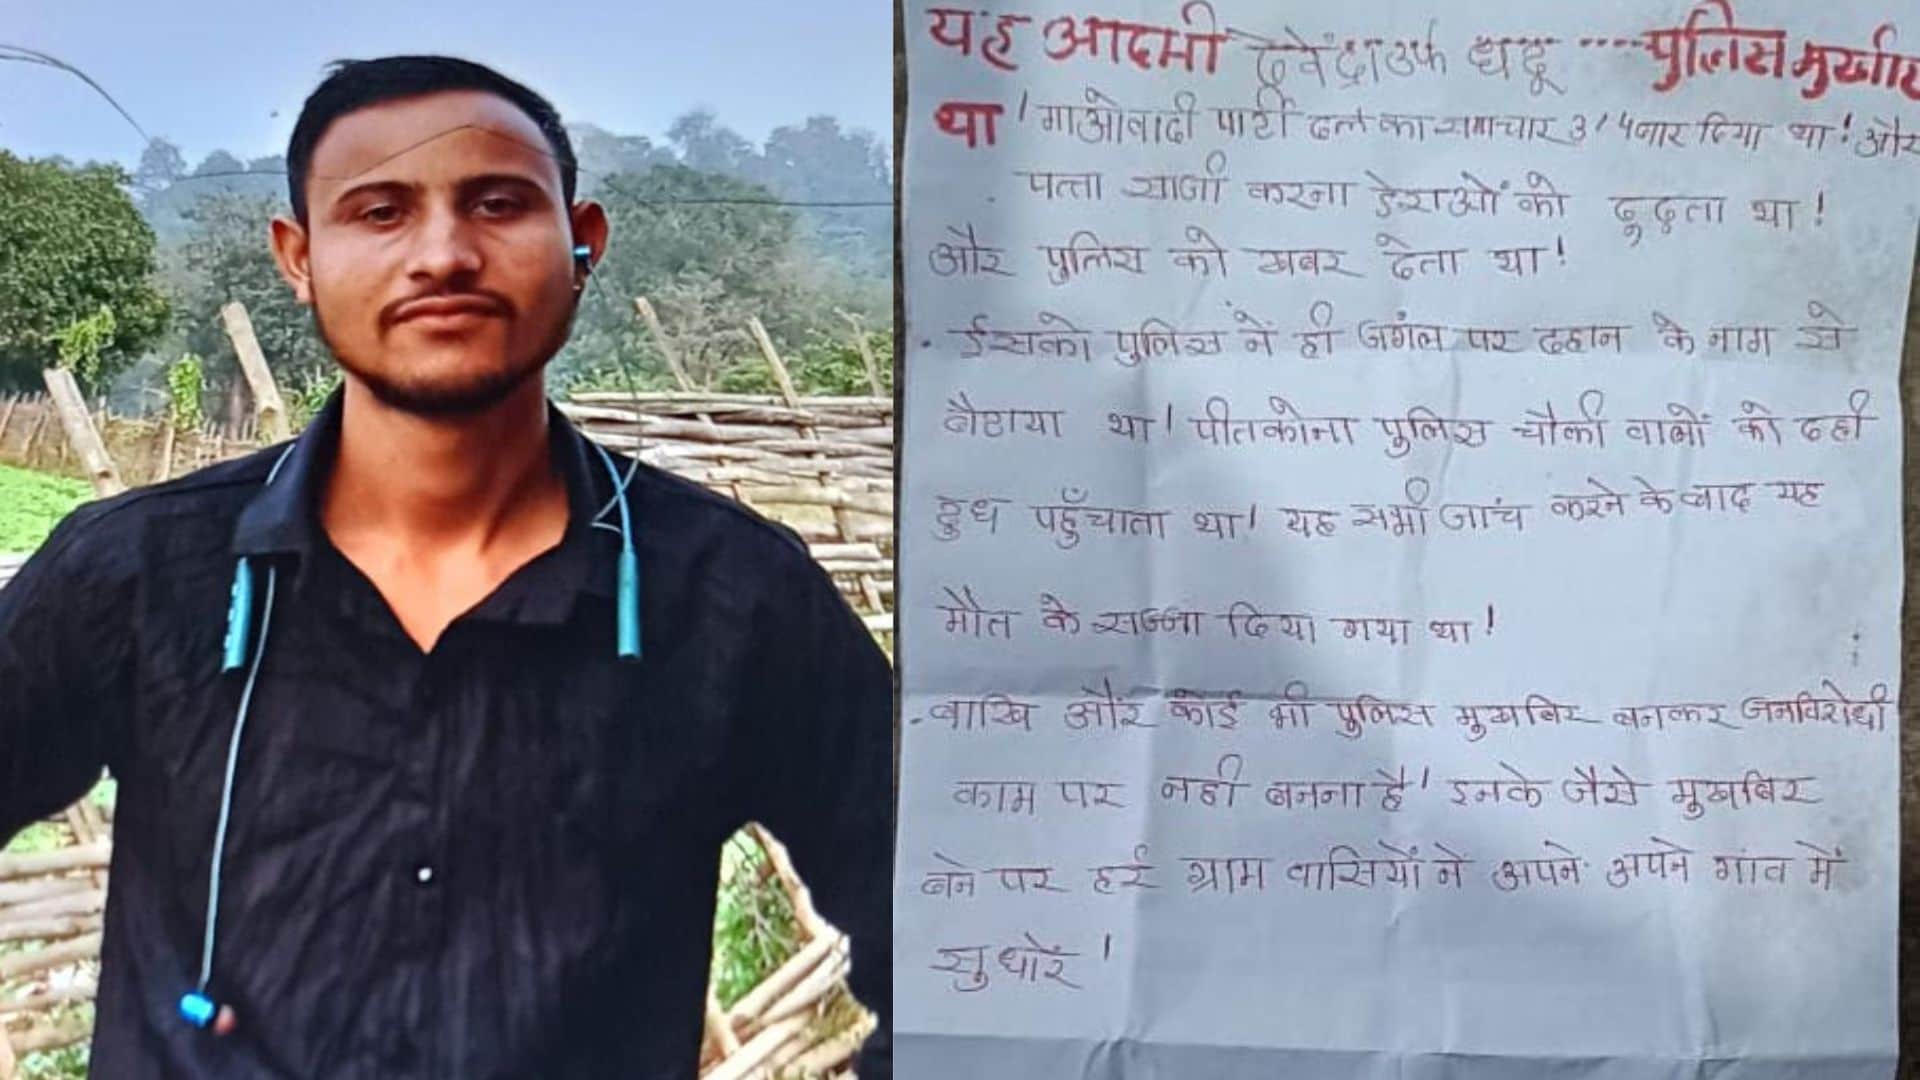 यह आदमी देवेंद्रा उर्फ धदू ---- पुलिस मुर्खाीर
था ! माओवादी पार्टी दल का समाचार 3/4 बार दिया था ! और
पत्ता साजी करना डेराओं को ढूढ़ता था !
और पुलिस को खबर देता था !
. ईसको पुलिस ने ही जगंल पर दहान के नाम से
बैठाया था ! पीतकोना पुलिस चौकी वालों को दही
दुध पहुँचाता था ! यह सभी जांच करने के बाद यह
मौत के सज्जा दिया गया था !
. बाखि और कोई भी पुलिस मुखबिर बनकर जनविरोधी
काम पर नही बनना है ! इनके जैसे मुखबिर
बने पर हर्र ग्राम वासियों ने अपने अपने गांव में
सुधारें !